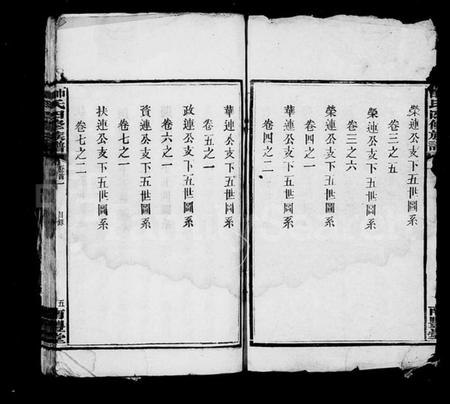 榮連公支下五世圖系
卷三之五
榮連公支下五世圖系
卷三之六
榮連公支下五世圖系
卷四之一
華連公支下五世圖系
卷四之二
華連公支下五世圖系
卷五之一
政連公支下五世圖系
卷六之一
資連公支下五世圖系
卷七之一
扶連公支下五世圖系
卷七之二
目錄
五